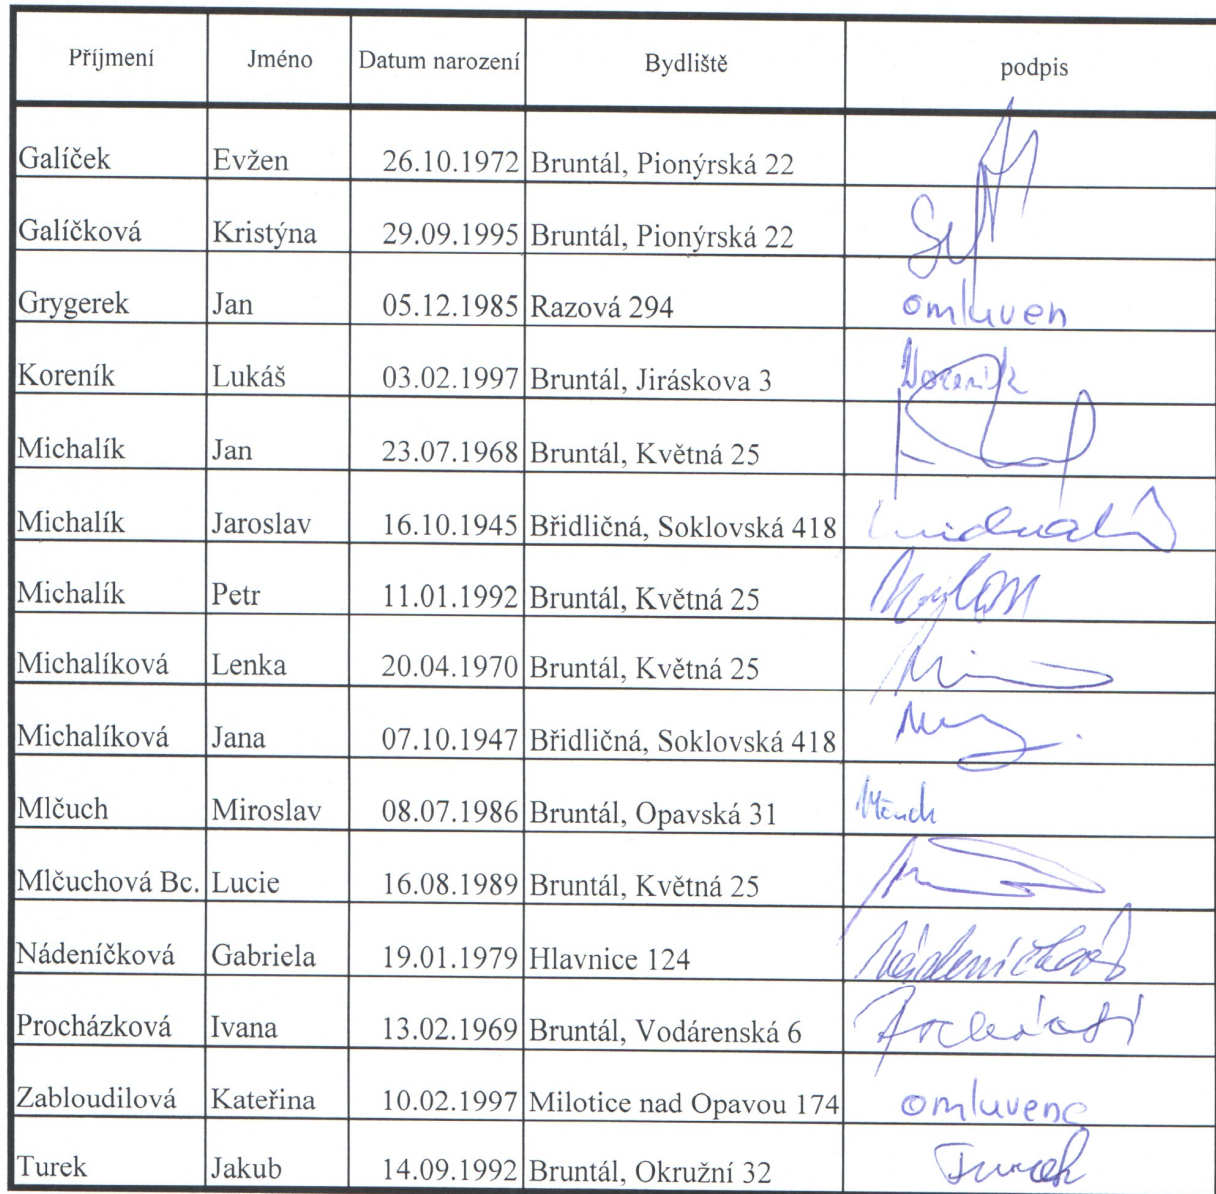 Příjmení Jméno Datum narození Bydliště podpis
Galíček Evžen 26.10.1972 Bruntál, Pionýrská 22
Galíčková Kristýna 29.09.1995 Bruntál, Pionýrská 22
Grygerek Jan 05.12.1985 Razová 294 omluven
Koreník Lukáš 03.02.1997 Bruntál, Jiráskova 3 Korenik
Michalík Jan 23.07.1968 Bruntál, Květná 25
Michalík Jaroslav 16.10.1945 Břidličná, Soklovská 418
Michalík Petr 11.01.1992 Bruntál, Květná 25
Michalíková Lenka 20.04.1970 Bruntál, Květná 25
Michalíková Jana 07.10.1947 Břidličná, Soklovská 418
Mlčuch Miroslav 08.07.1986 Bruntál, Opavská 31
Mlčuchová Bc. Lucie 16.08.1989 Bruntál, Květná 25
Nádeníčková Gabriela 19.01.1979 Hlavnice 124 Nádeníčková
Procházková Ivana 13.02.1969 Bruntál, Vodárenská 6
Zabloudilová Kateřina 10.02.1997 Milotice nad Opavou 174 omluvena
Turek Jakub 14.09.1992 Bruntál, Okružní 32 Turek